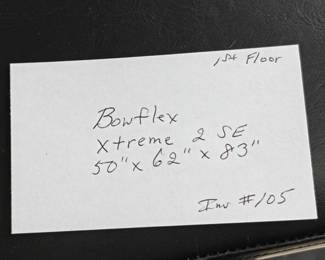 1st Floor
Bowflex
Xtreme 2 SE
50" x 62" x 83"
Inv #105